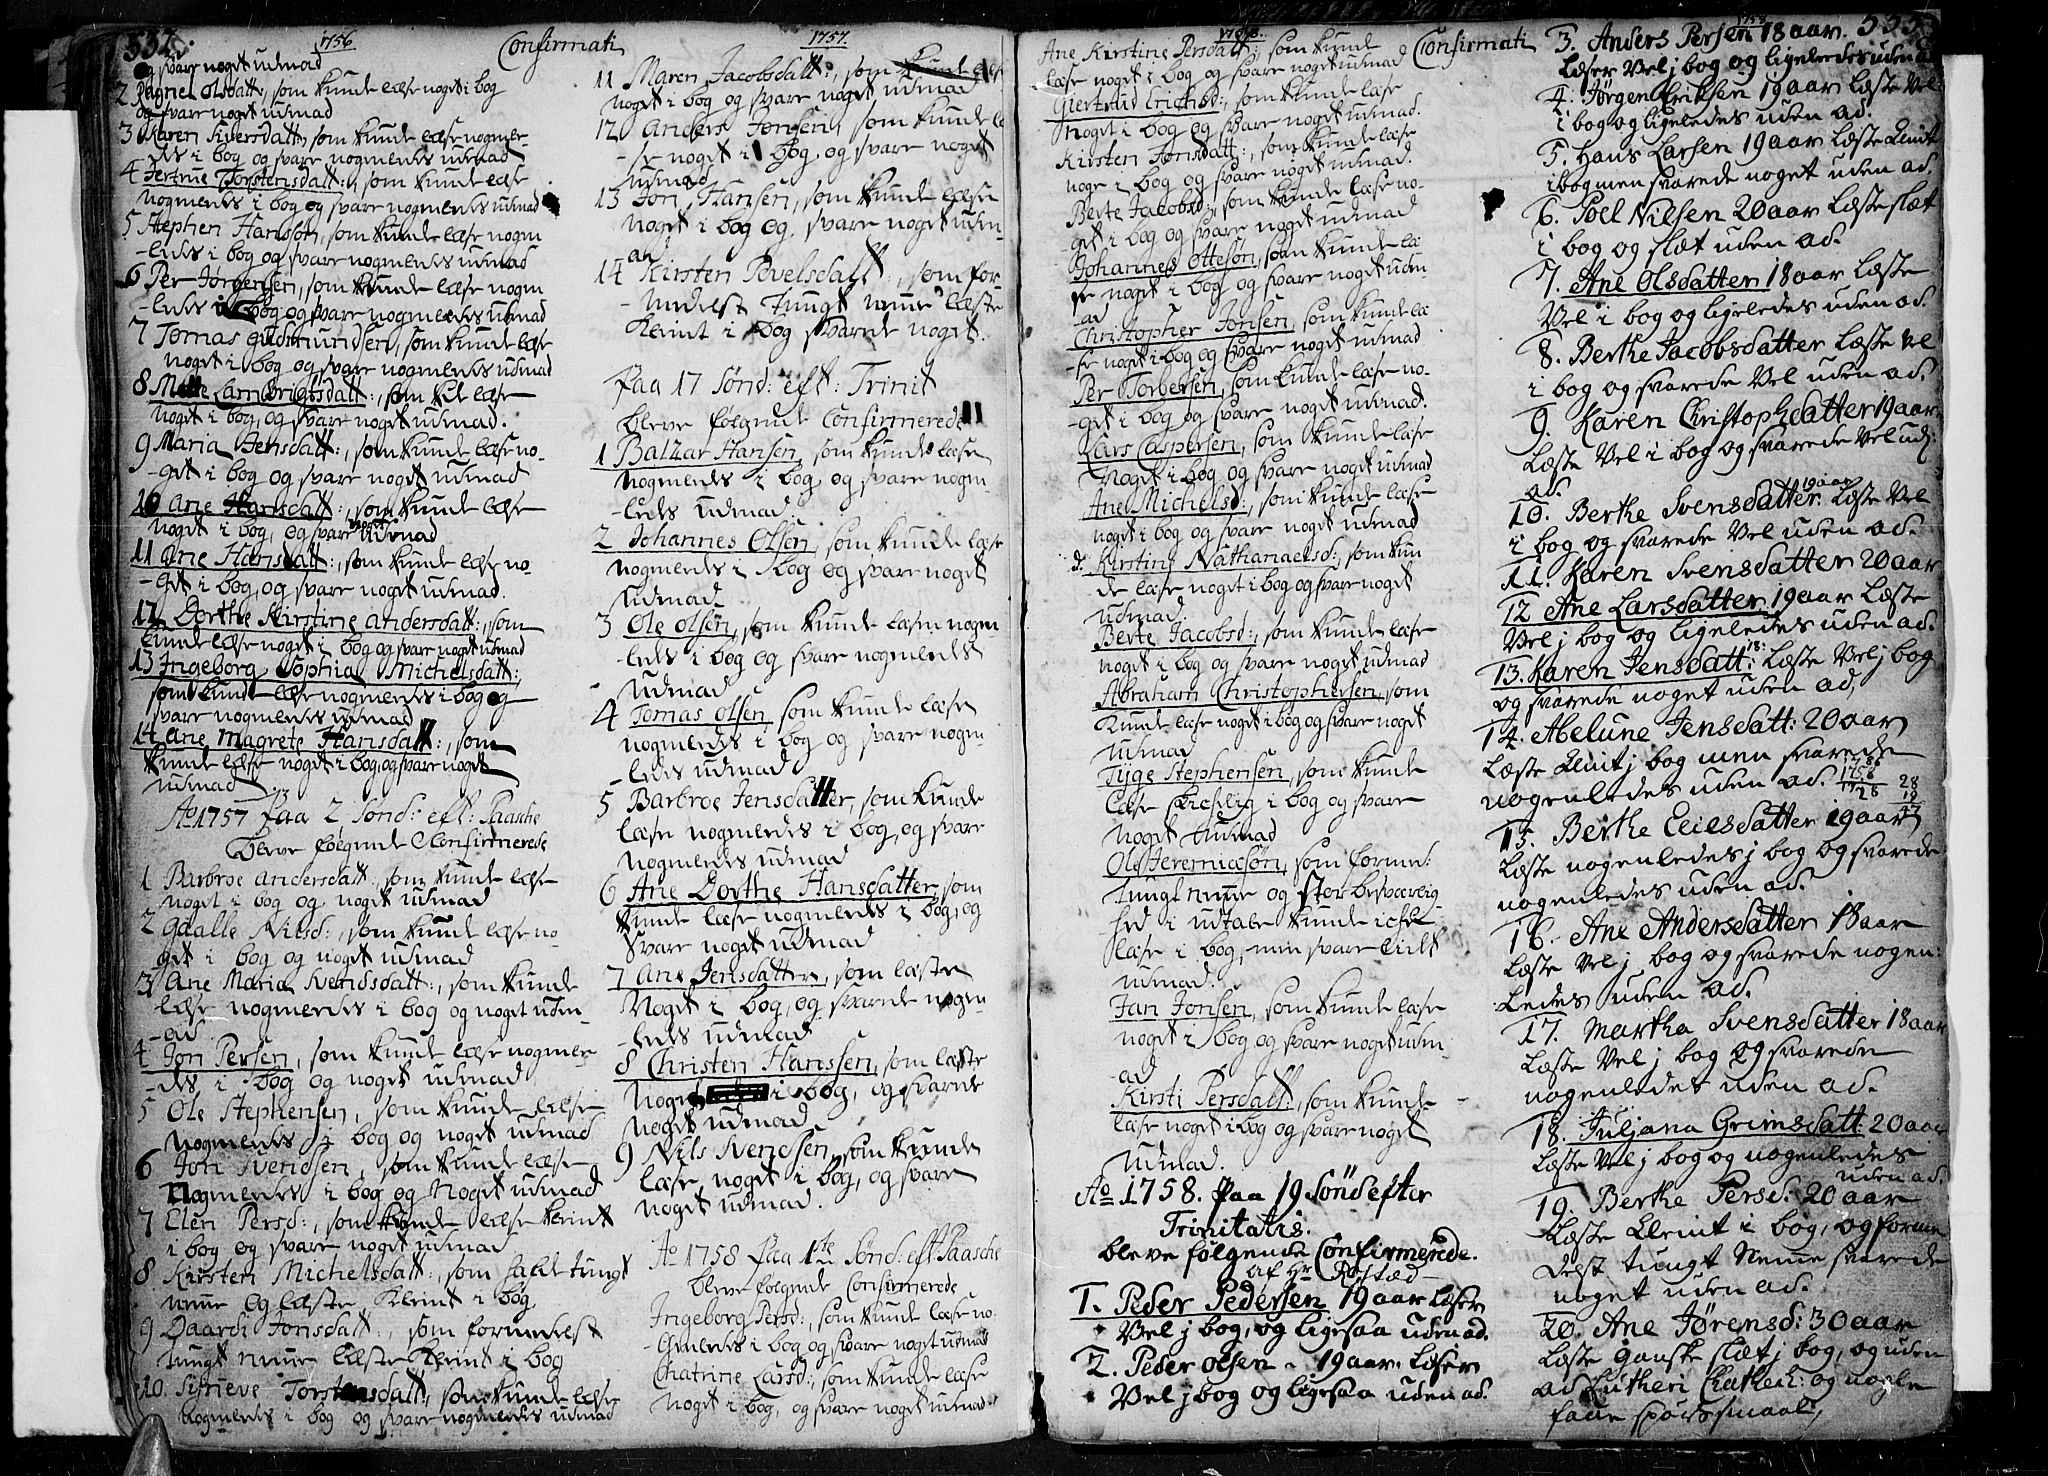 532.
1756
Confirmati
og svare noget udenad
2 Olsdatt:, som kunde læse noget i bog
og svare noget udenad
3 Karen Siversdatt:, som kunde læse nogenle-
-des i bog og svare nogenledes udenad
4 Torstensdatt:, som kunde læse
nogenledes i bog og svare nogenledes udenad
5 Stephen Hansson, som kunde læse nogen-
-ledes i bog og svare nogenledes udenad
6 Per Jørgensen, som kunde læse nogen
-ledes i bog og svare nogenledes udenad
7 Tomas Gudmundsen, som kunde læse
noget i bog, og svare nogenledes udenad
8 Mette som kunde læse
noget i bog, og svare noget udenad.
9 Maria Jensdatt:, som kunde læse no-
-get i bog og svare noget udenad
10 Ane Hansdatt:, som kunde læse
noget i bog, og svare noget udenad
11 Ane Hansdatt:, som kunde læse no-
-get i bog, og svare noget udenad.
12 Dorthe Kirstine Andersdatt:, som
kunde læse noget i bog og svare noget udenad
13 Ingeborg Sophia Michelsdatt:,
som kunde læse nogenledes i bog og
svare nogenledes udenad
14 Ane Magrete Hansdatt:, som
kunde læse noget i bog, og svare noget
udenad
Ao 1757 paa 2 Sønd: eft: Paasche
Bleve følgende Confirmerede
1 Barbroe Andersdatt:, som kunde læse
noget i bog og noget udenad
2 Nilsd:, som kunde læse no-
get i bog og noget udenad
3 Ane Maria Svendsdatt:, som kunde
læse nogenledes i bog og noget uden-
-ad
4 Jon Persen, som kunde læse nogenle-
-des i bog og noget udenad
5 Ole Stephensen, som kunde læse
nogenledes i bog og noget udenad
6 Jon Svendsen, som kunde læse
nogenledes i bog og noget udenad
7 Elen Persd:, som kunde læse kleint
i bog og svare noget udenad
8 Kirsten Michelsdatt:, som hafde tungt
nemme og læste kleint i bog
9 Jonsdatt:, som formedelst
tungt nemme læste kleint i bog
10 Torstensdatt:, som kunde læse
nogenledes i bog og svare nogenledes udenad
1757.
11 Maren Jacobsdatt:, som kunde læse
noget i bog og svare noget udenad
12 Anders Jonsen, som kunde læ
-se noget i bog, og svare noget
udenad
13 Jon Hansen, som kunde læse
noget i bog og svare noget uden-
ad
14 Kirsten Povelsdatt:, som for-
-medelst tungt nemme læste
kleint i bog svarede noget.
Paa 17 Sønd: eft: Trinit
Bleve følgende Confirmerede
1 Balzar Hansen, som kunde læse
nogenledes i bog, og svare nogen-
-ledes udenad.
2 Johannes Olsen, som kunde læse
nogenledes i bog og svare noget
udenad
3 Ole Olsen, som kunde læse nogen
-ledes i bog og svare nogenledes
-udenad
4 Tomas Olsen, som kunde læse
nogenledes i bog og svare nogen-
-ledes udenad
5 Barbroe Jensdatter, som kunde
læse nogenledes i bog, og svare
nogenledes udenad
6 Ane Dorthe Hansdatter, som
kunde læse nogenledes i bog, og
svare noget udenad
7 Ane Jensdatter, som læste
noget i bog, og svarede nogen-
-ledes udenad
8 Christen Hanssen, som læste
noget i bog, og svarede
noget udenad
9 Nils Svendsen, som kunde
læse noget i bog, og svare
noget udenad.
Ao 1758 Paa 1te Sønd: eft Paasche
bleve følgende Confirmerede
Ingeborg Persd:, som kunde læse no-
-genledes i bog, og svare noget udenad
Chatrine Larsd:, som kunde læse
noget i bog, og svare noget udenad.
1758.
Confirmati
Ane Kirstine Persdatt:, som kunde
læse noget i bog og svare noget udenad
Giertrud Erichsd:, som kunde læse
noget i bog og svare noget udenad.
Kirsten Jonsdatt:, som kunde læse
noge i bog og svare noget udenad.
Berte Jacobsd:, som kunde læse no-
-get i bog og svare noget udenad
Johannes Ottesøn, som kunde læ
se noget i bog og svare noget uden
-ad
Christopher Jonsen, som kunde læ
-se noget i bog og svare noget udenad
Per Torbersen, som kunde læse no-
-get i bog og svare noget udenad.
Lars Caspersen, som kunde læse
noget i bog og svare noget udenad
Ane Michelsd:, som kunde læse
noget i bog og svare noget udenad
d: Kirstine Nathanaelsd:, som kun
de læse noget i bog og svare noget
udenad
Berte Jacobsd:, som kunde læse
noget i bog og svare noget udenad
Abraham Christophersen, som
kunde læse noget i bog og svare noget
udenad
Tyge Stephensen, som kunde
læse i bog og svare
noget udenad
Ole Jeremiæsøn, som formed:
tungt nemme og stor besværlig
hed i udtale kunde icke
læse i bog, men svare lidt
udenad.
Jan Jonsen, som kunde læse
noget i bog og svare noget uden-
-ad
Kirsti Persdatt:, som kunde
læse noget i bog og svare noget
udenad.
Ao 1758. Paa 19 Sønd efter
Trinitatis.
bleve følgende Confirmerede.
af Hr
1. Peder Pedersen 19 aar læser
Vel j bog, og ligesaa uden ad.
2. Peder Olsen - 19 aar. læser
Vel j bog og ligesaa uden ad.
1758
533
3. Anders Persen 18 aar.
læser vel j bog og ligeledes uden ad
4. Jørgen Eriksen 19 aar læste Vel
i bog og ligeledes uden ad.
5. Hans Larsen 19 aar læste kleint
i bog men svarede noget uden ad.
6. Poel Nilsen 20 aar læste slæt
i bog og slæt uden ad.
7. Ane Olsdatter 18 aar læste
Vel i bog og ligeledes uden ad.
8. Berthe Jacobsdatter læste vel
i bog og svarede vel uden ad.
9. Karen Christophsdatter 19 aar
læste vel i bog og svarede vel ud:
ad.
10. Berthe Svensdatter. 19 aar læste Vel
i bog og svarede Vel uden ad.
11. Karen Svensdatter 20 aar
12 Ane Larsdatter 19 aar læste
Vel j bog og ligeledes uden ad.
13. Karen Jensdatt: 18: læste Vel j bog
og svarede noget uden ad,
14. Abelune Jensdatt: 20 aar
læste kleint j bog men svarede
nogenledes uden ad.
1786
1758
28
28
19
47
15. Berthe Eliesdatter 19 aar
læste nogenledes j bog og svarede
nogenledes uden ad.
16. Ane Andersdatter 18 aar
læste Vel j bog og svarede nogen:
ledes uden ad.
17. Martha Svensdatter 18 aar
læste Vel j bog og svarede
nogenledes uden ad.
18. Juljana Grimsdatt: 20 aar
læste Vel j bog og nogenledes
uden ad.
19. Berthe Persd: 20 aar
læste kleint i bog, og forme
delst tungt Nemme svarede
noget uden ad.
20. Ane Jørensd: 30 aar
læste ganske slæt j bog, og uden
ad Lutheri Chatech: og nogle
faae spørssmaal,